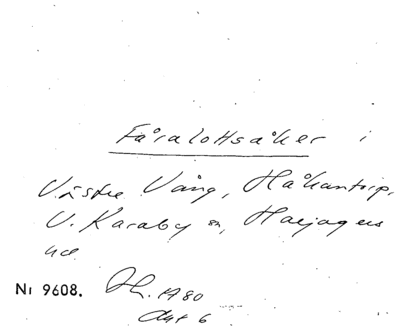 Fåralottsåker i
Västra Vång, Håkantorp,
V. Karaby sn, Harjagers
hd.
Nr 9608. 1980